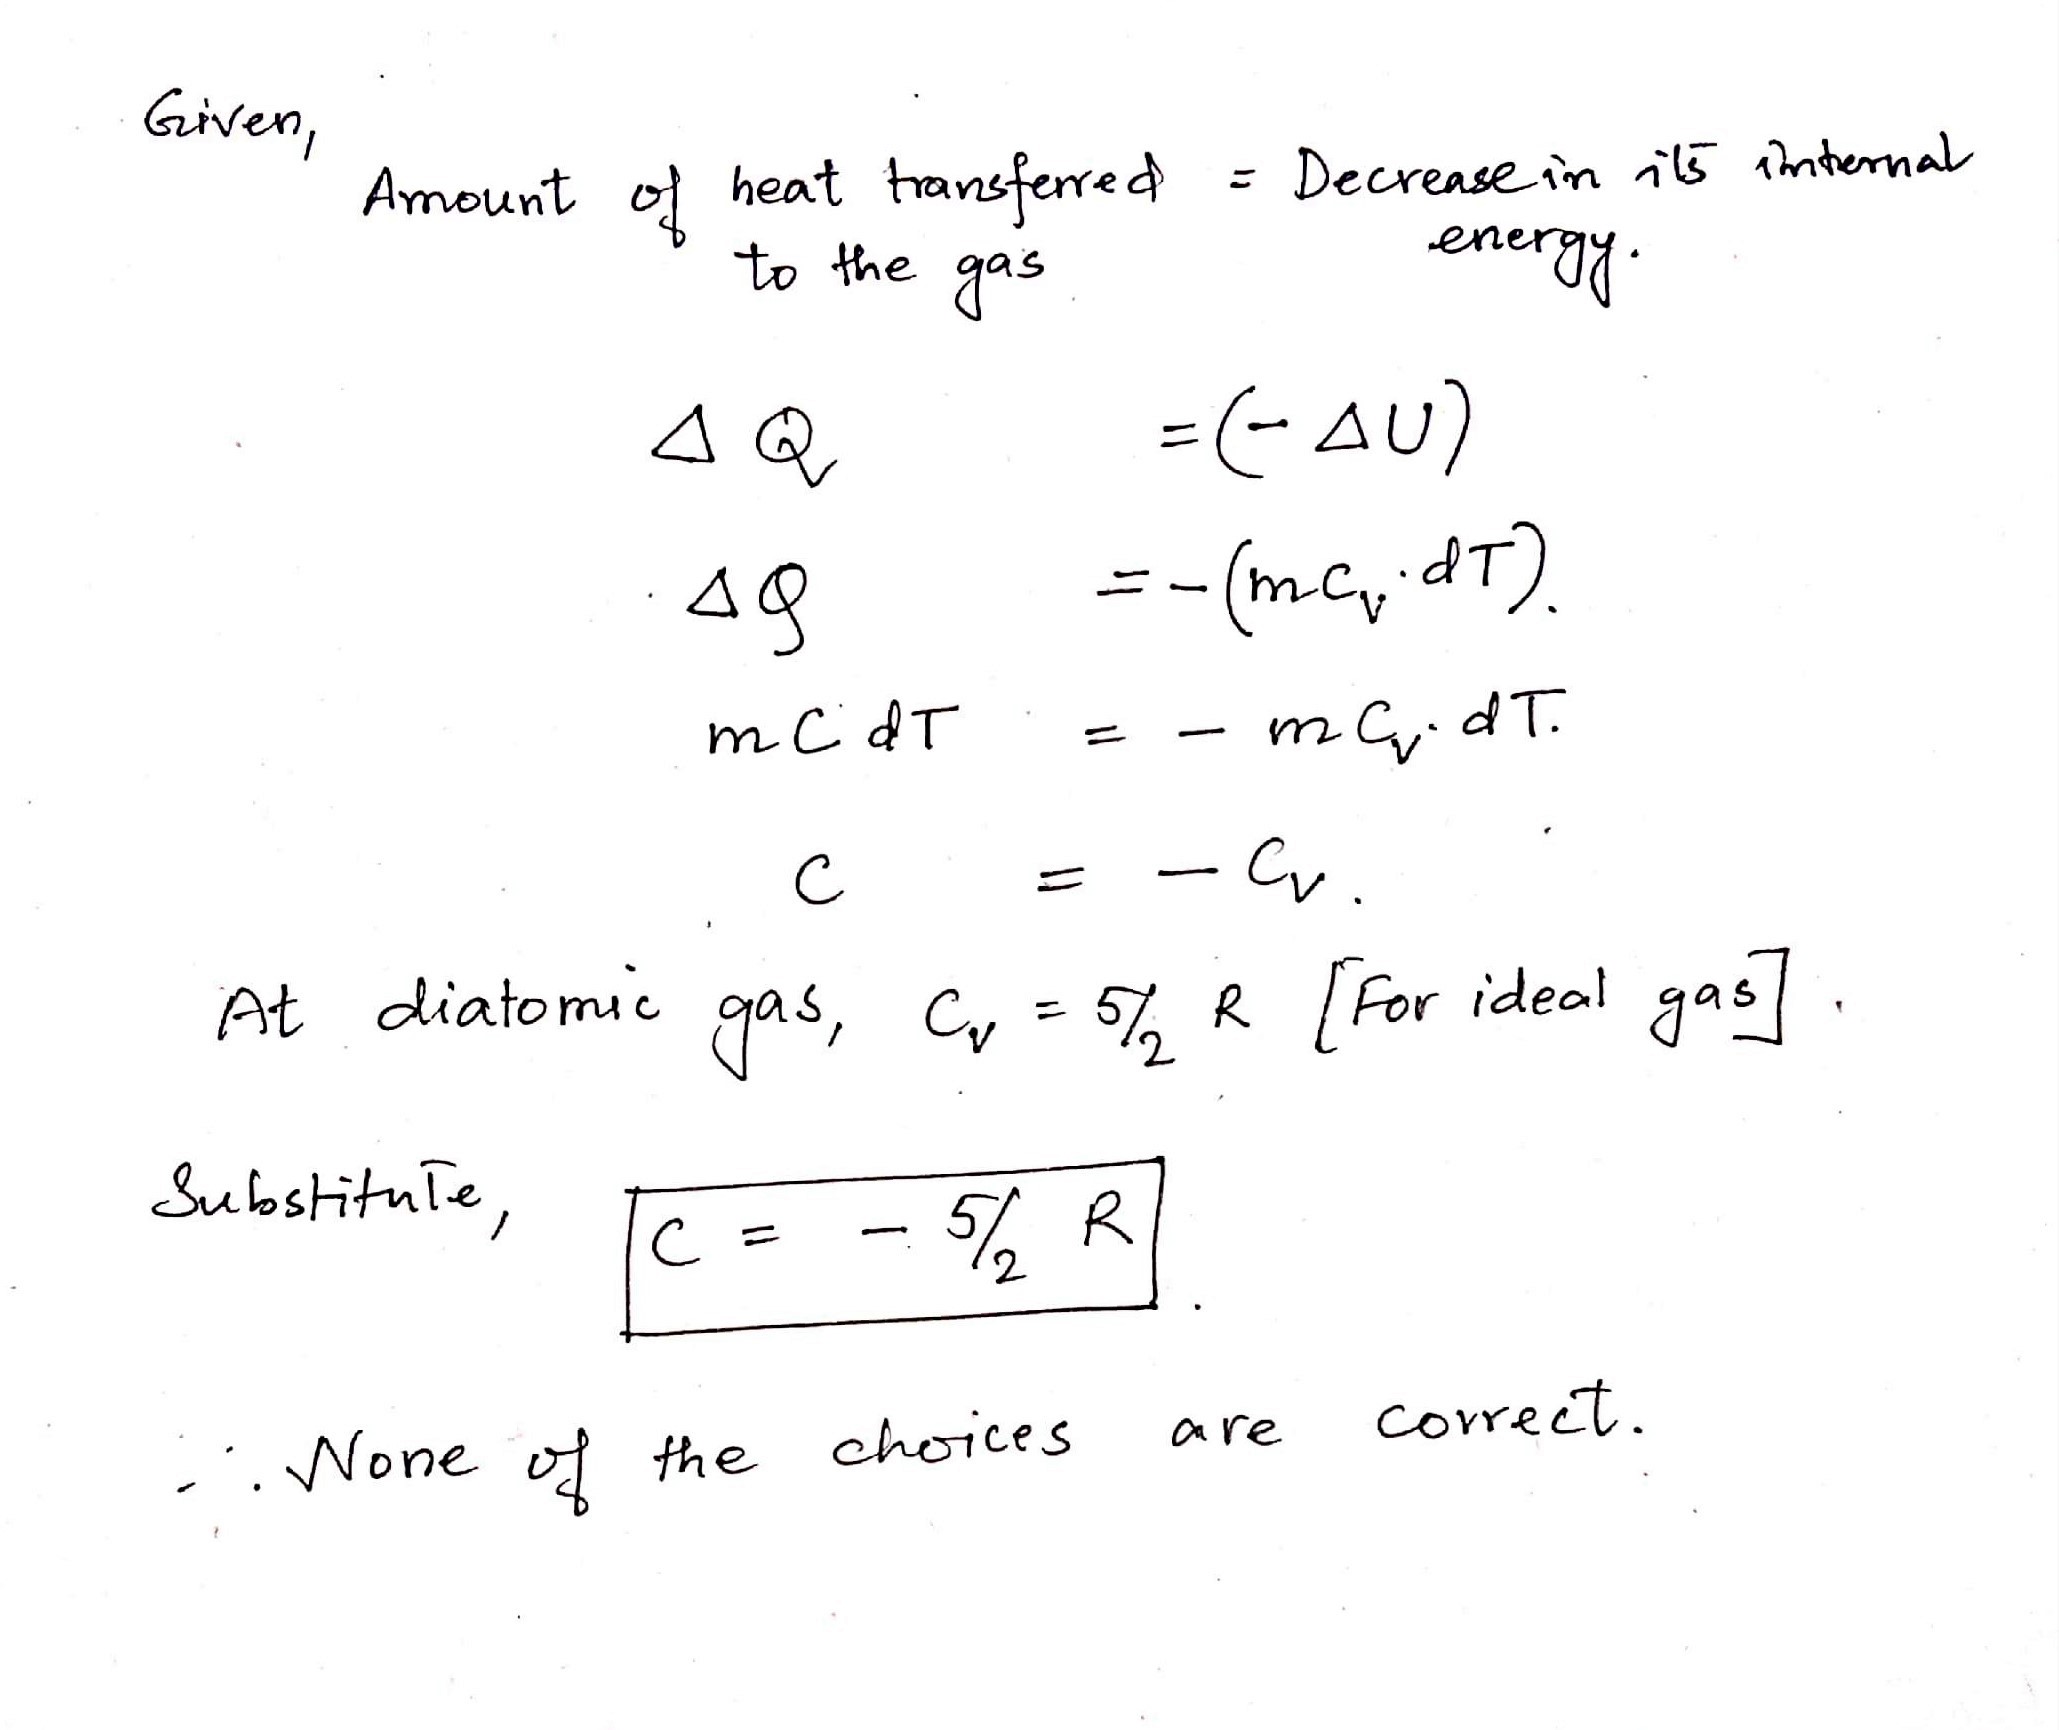 Given,
Amount of heat transferred = Decrease in its internal
to the gas energy.
Δ Q = (- ΔU)
ΔQ = - (m Cv. dT).
m C dT = - m Cv. dT.
C = - Cv.
At diatomic gas, Cv = 5/2 R [For ideal gas].
Substitute, C = - 5/2 R.
∴ None of the choices are correct.